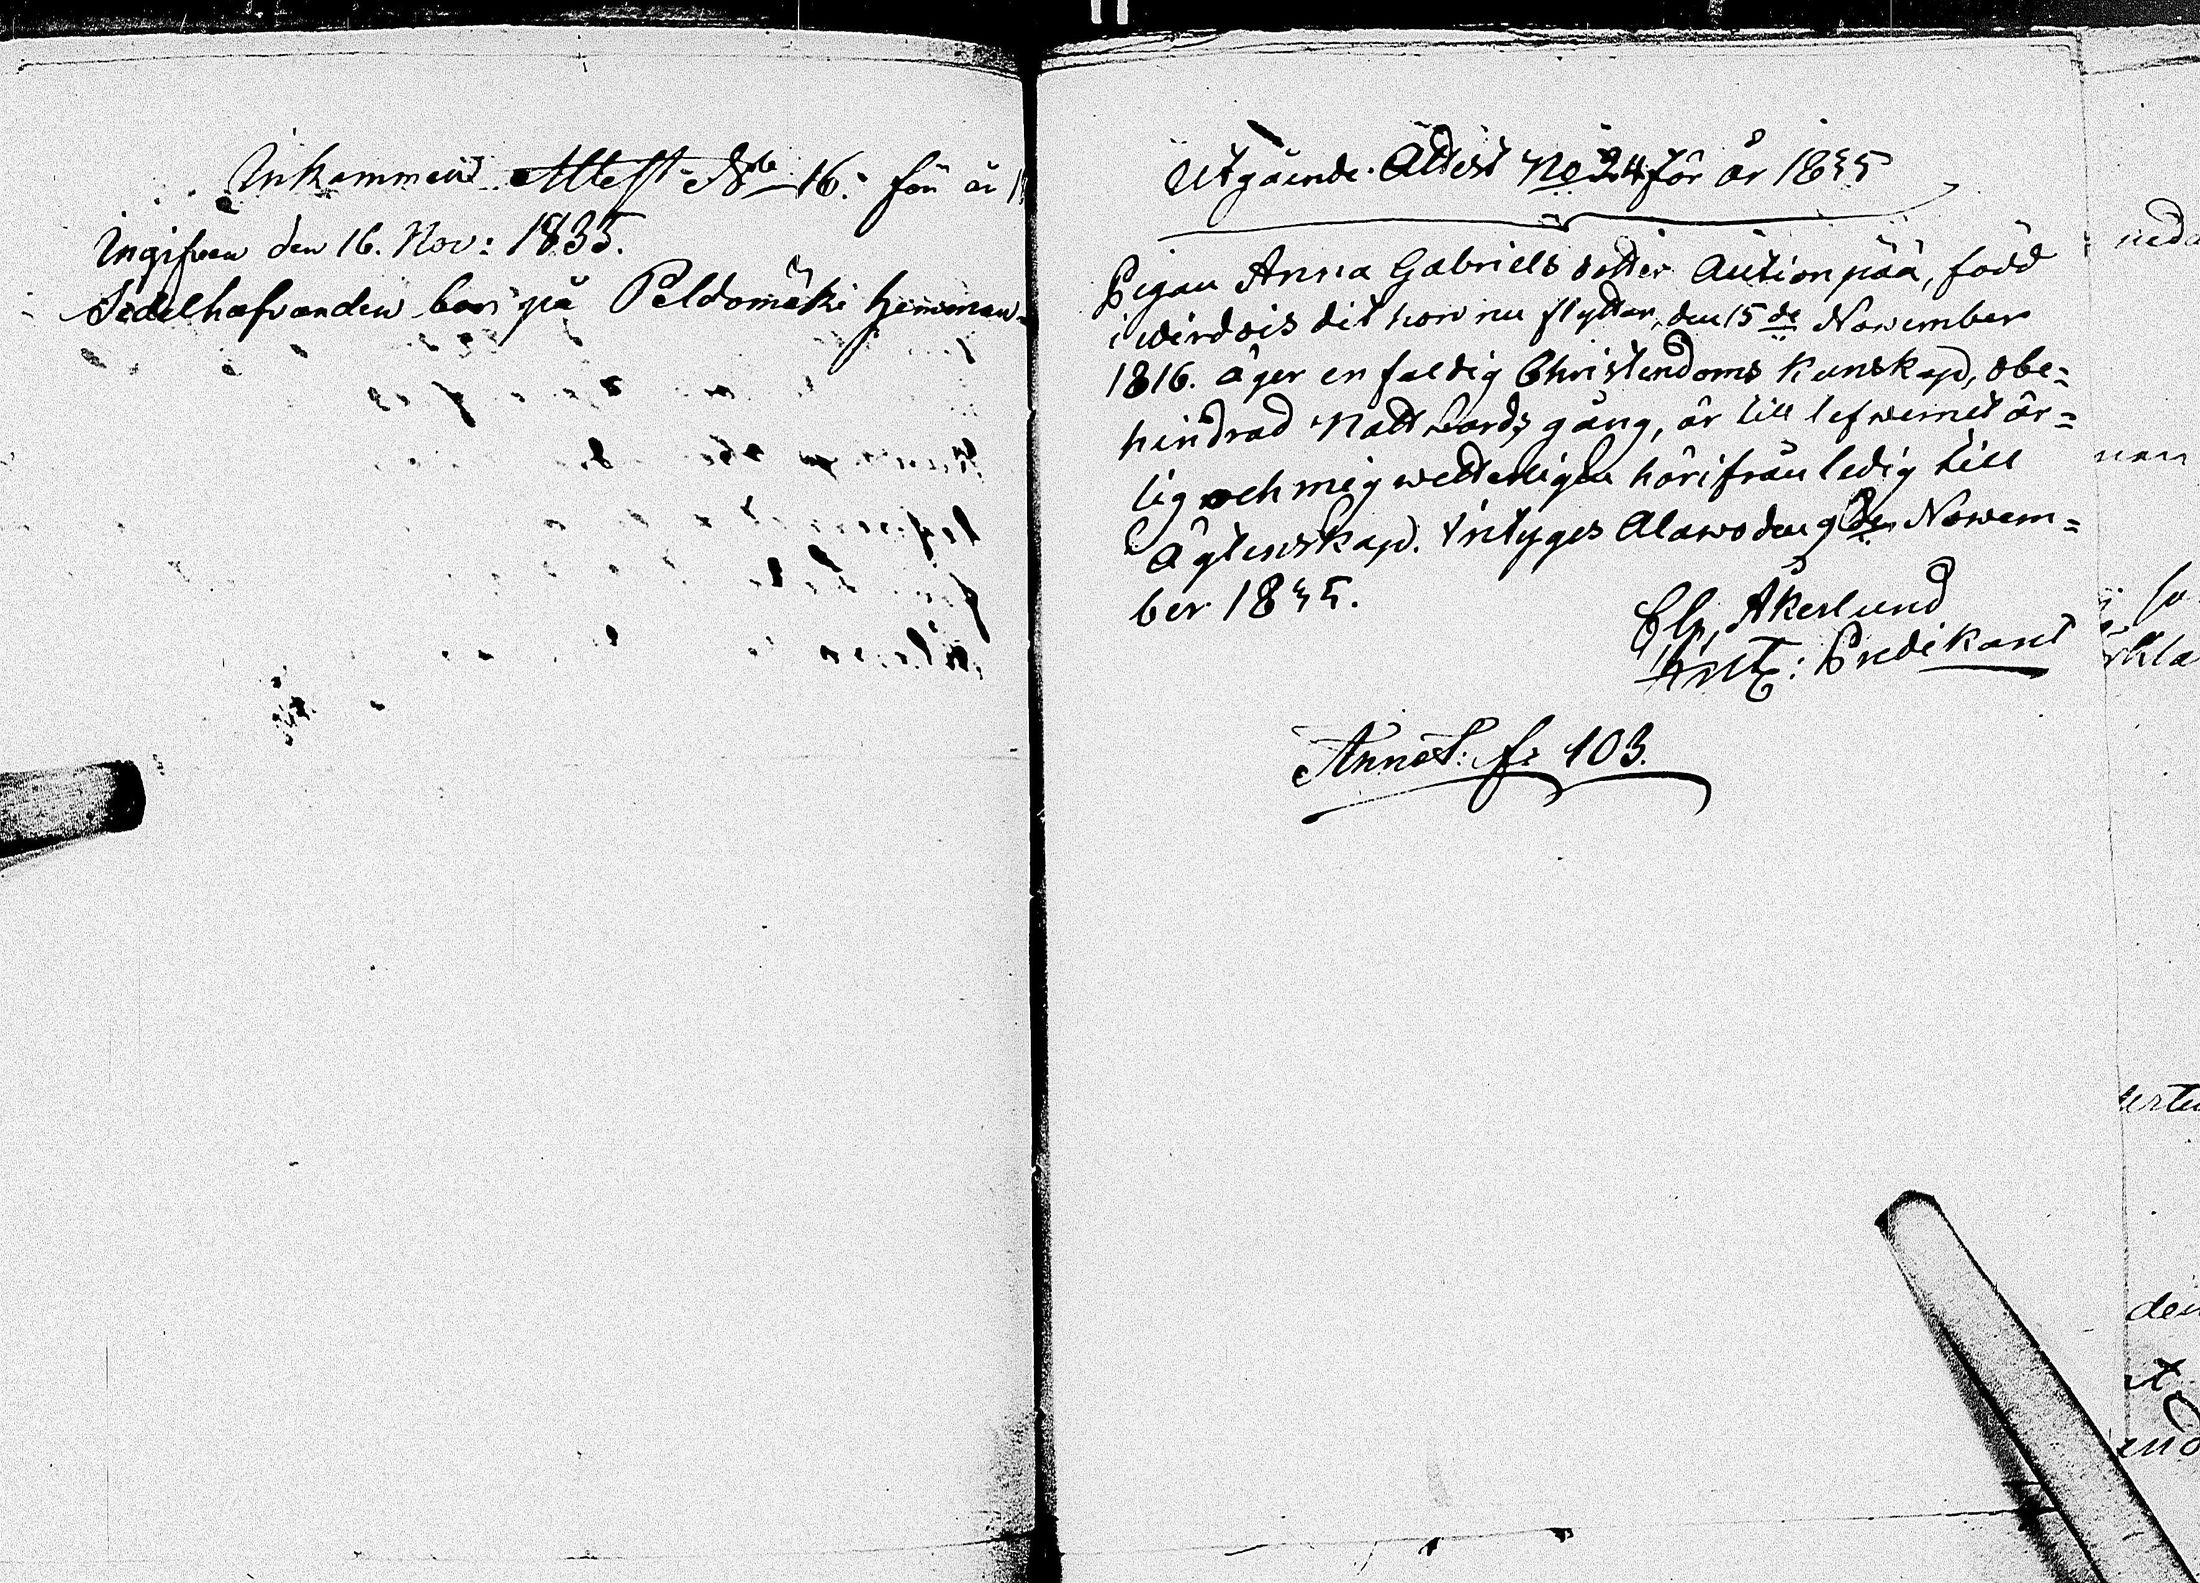 Inkommen Attest No 16. för år 1
Ingifven den 16. Nov: 1835.
Sedelhafvanden bor på Peldomäki hemman
Utgående Attest No 24 för år 1835
Pigan Anna Gabriels dotter Aution pää, född
i Wirdois dit hon nu flyttar, den 15 de November
1816. äger enfaldig Christendoms kunskap, obe=
hindrad Nattvards gång, är till lefwernet är=
lig och mig wetterligen härifrån ledig till
Ägtenskap. Intyges Alawo den 9 de Novem=
ber 1835.
El, Åkerlund
Predikant
Annot: f: 103.